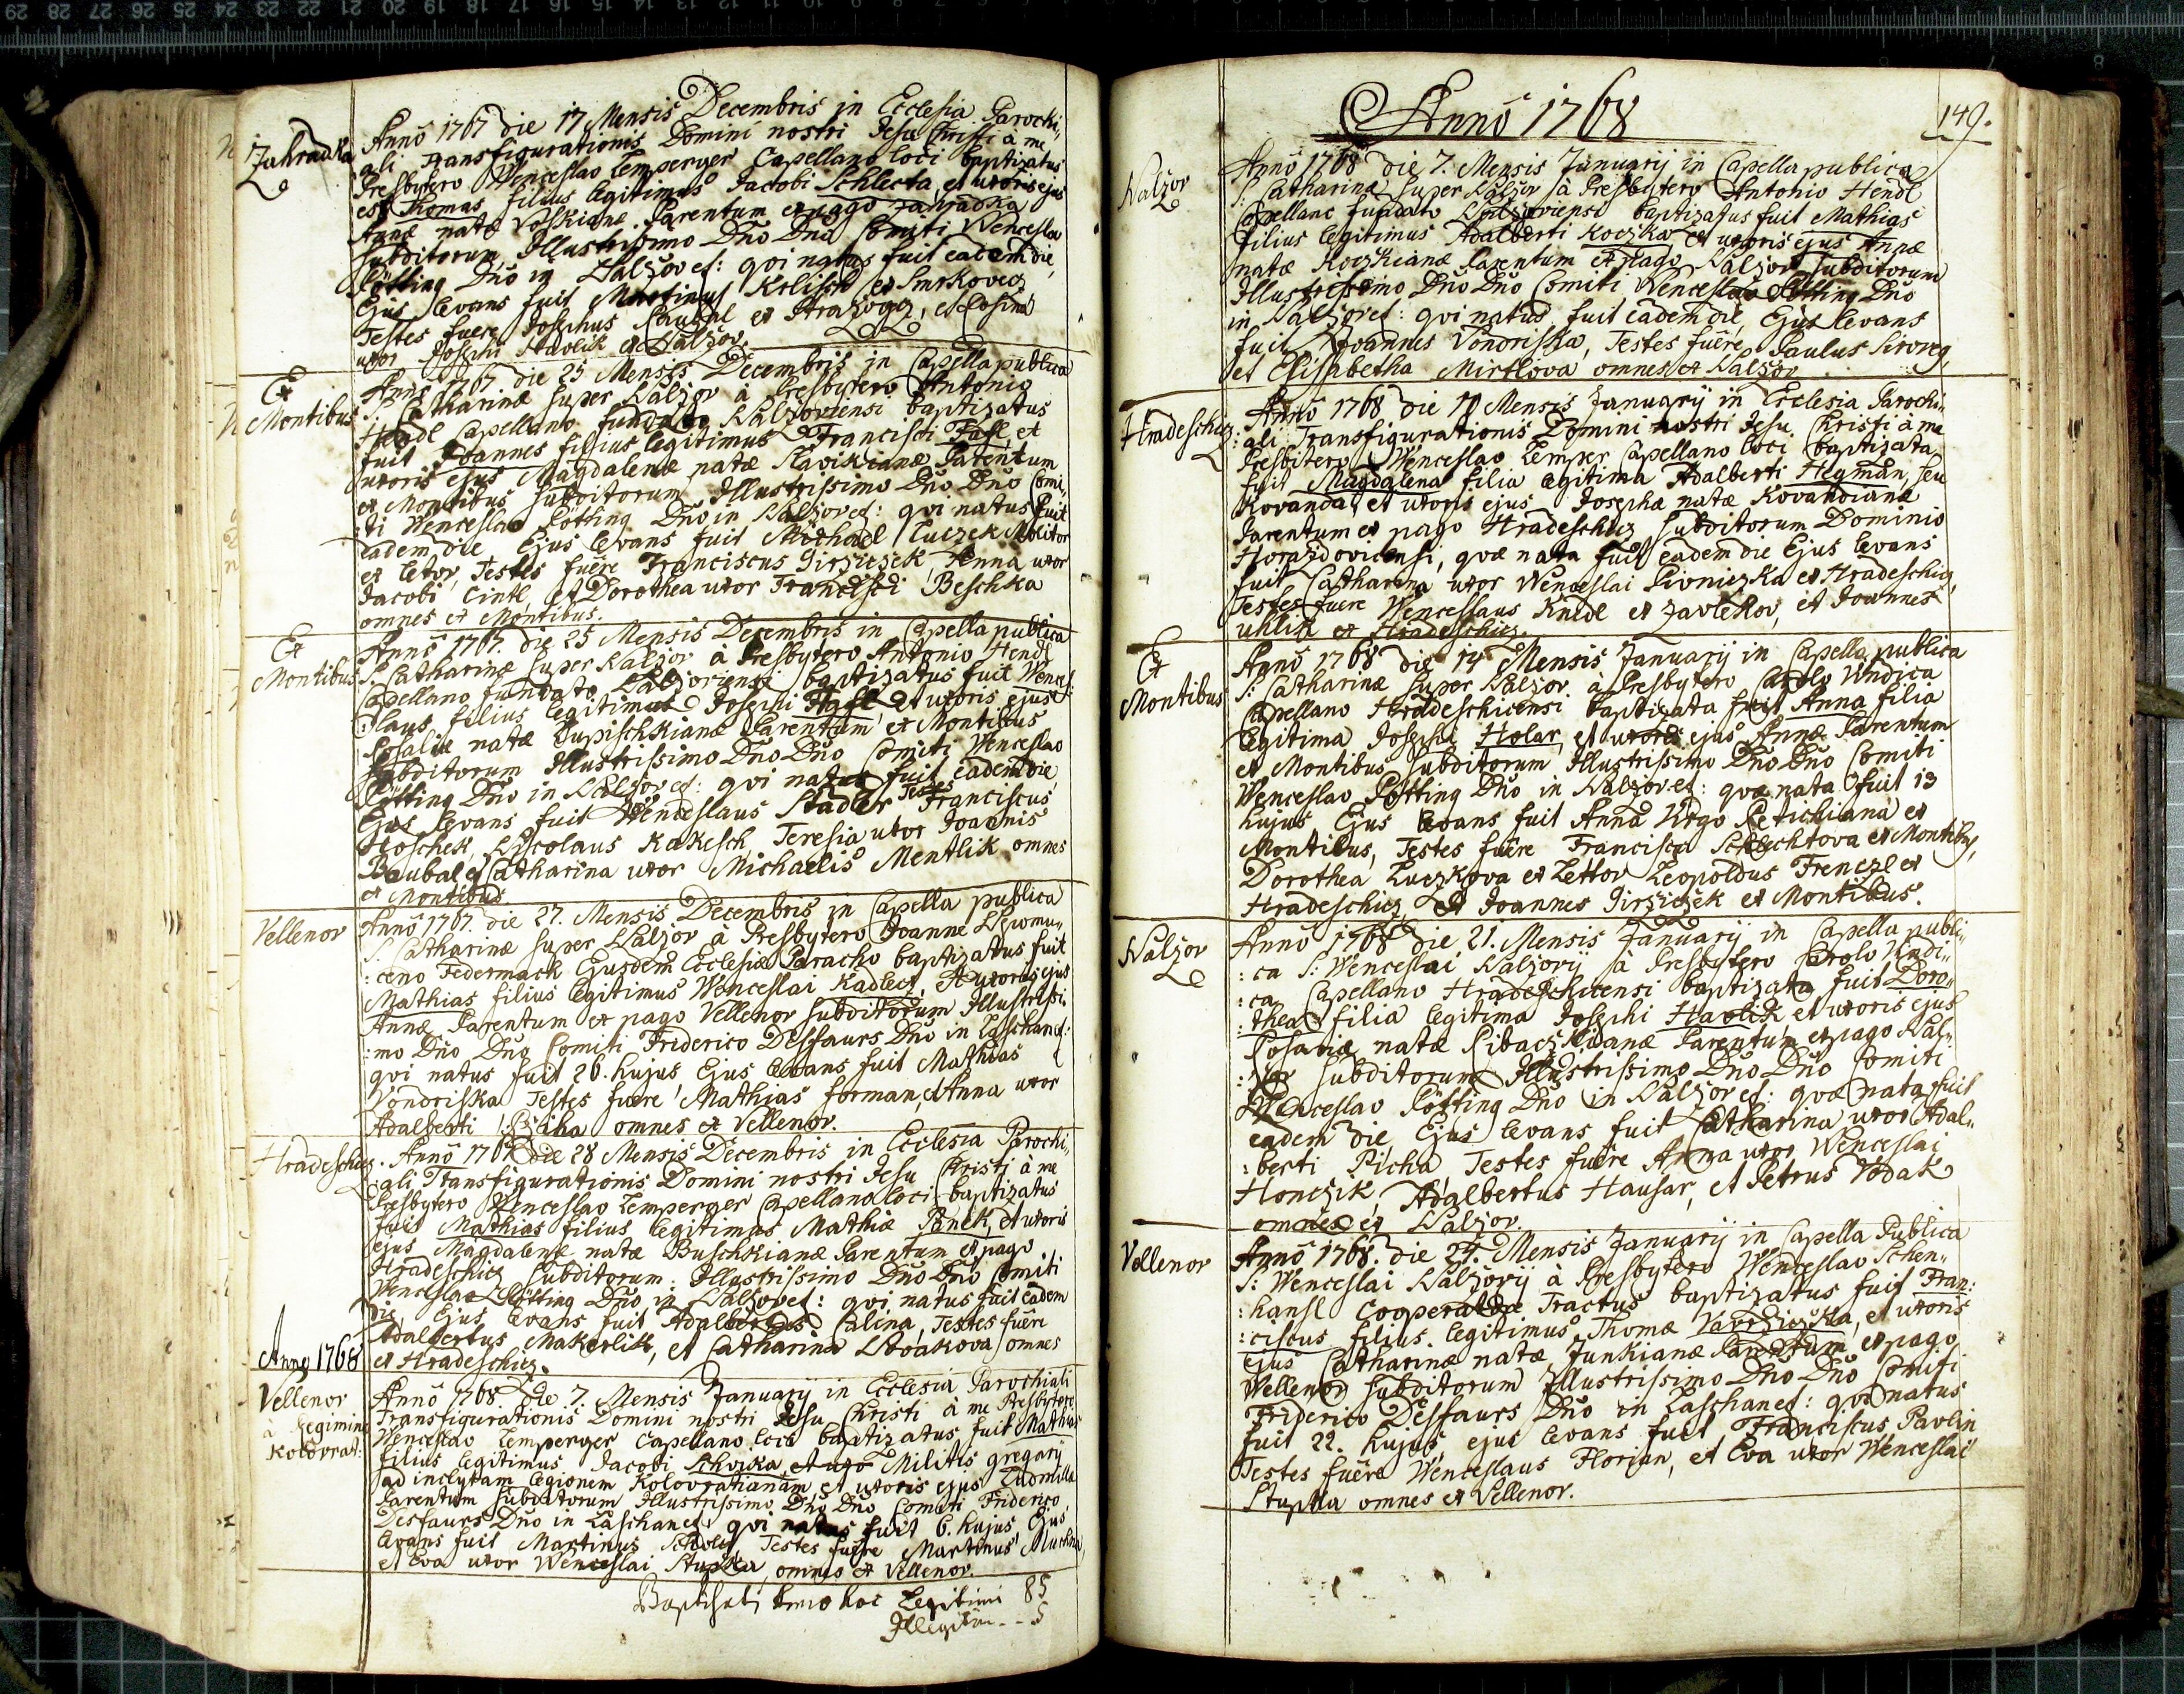 Zahradka
Anno 1767 die 17 Mensis Decembris in Ecclesia Parochi„
ali Transfigurationis Domini nostri Jesu Christi à me
Presbytero Wenceslao Lemperger Capellano loci baptizatus
est Thomas filius legitimus Jacobi Schlecta, et uxoris ejus
Annæ natæ Voskianæ Parentum ex pago Zahradka
subditorum Illustrissimo Dño Dño Comiti Wenceslao
Pötting Dño in Nalzov et: qvi natus fuit eadem die,
Ejus levans fuit Martinus Krlisch ex Smrkovecz
Testes fuere Josephus Caubal ex Strazogz, et Cosina
uxor Josephi Havlik ex Nalzov.
Ex
Montibus
Anno 1767. die 25 Mensis Decembris in Capella publica
S: Catharinæ super Nalzov à Presbytero Antonio
Hendl Capellano fundato Nalzoviensi baptizatus
fuit Joannes filius legitimus Francisci Hasl et
uxoris ejus Magdalenæ natæ Slavikianæ Parentum
ex Montibus subditorum Illustrissimo Dño Dño Comi„
ti Wenceslao Pötting Dño in Nalzov et: qvi natus fuit
eadem die, Ejus levans fuit Michael Luczek Molitor
ex Letov, Testes fuere Franciscus Girziczek, Anna uxor
Jacobi Cintl, et Dorothea uxor Francisci Beschka
omnes ex Montibus.
Ex
Montibus
Anno 1767. die 25 Mensis Decembris in Capella publica
S. Catharinæ super Nalzov à Presbytero Antonio Hendl
Capellano fundato Nalzoviensi baptizatus fuit Wences„
:slaus filius legitimus Josephi Hasl et uxoris ejus
Rosaliæ natæ Dupischkianæ Parentum ex Montibus
subditorum Illustrissimo Dño Dño Comiti Wenceslao
Pötting Dño in Nalzov et: qvi natus fuit eadem die
Ejus levans fuit Wenceslaus Stadler Testes Franciscus
Hoschek, Nicolaus Kakesch, Teresia uxor Joannis
Baubal et Catharina uxor Michaelis Mentlik omnes
ex Montibus.
Vellenov
Anno 1767. die 27. Mensis Decembris in Capella publica
S. Catharinæ super Nalzov à Presbytero Joanne Nepomu„
:ceno Federmack Ejusdem Ecclesiæ Paracho baptizatus fuit
Mathias filius legitimus Wenceslai Kadlecz, et uxoris ejus
Annæ Parentum ex pago Vellenov subditorum Illustrissi„
:mo Dño Dño Comiti Friderico Desfaurs Dño in Laschan et:
qvi natus fuit 26. hujus Ejus levans fuit Mathias
Vondriska Testes fuere Mathias Forman, et Anna uxor
Adalberti Rziha omnes ex Vellenov.
Hradeschicz
Anno 1767 die 28 Mensis Decembris in Ecclesia Parochi„
:ali Transfigurationis Domini nostri Jesu Christi à me
Presbytero Wenceslao Lemperger Capellano loci baptizatus
fuit Mathias filius legitimus Mathiæ Panek, et uxoris
ejus Magdalenæ natæ Buschkianæ Parentum ex pago
Hradeschicz subditorum Illustrissimo Dño Dño Comiti
Wenceslao Pötting Dño in Nalzov et: qvi natus fuit eadem
die, Ejus levans fuit Adalbertus Calina, Testes fuêre
Adalbertus Makerlik, et Catharina Novakova omnes
ex Hradeschicz.
Anno 1768
Vellenov
à Regimine
Kolovrat:
Anno 1768. die 7. Mensis January in Ecclesia Parochiali
Transfigurationis Domini nostri Jesu Christi à me Presbytero
Wenceslao Lemperger Capellano loci baptizatus fuit Mathias
filius legitimus Jacobi Schvika et uxo Militis gregary
ad inclytam legionem Kolovratianam et uxoris ejus Ludmilla
Parentum subditorum Illustrissimo Dño Dño Comiti Friderico
Desfaurs Dño in Laschan et: qvi natus fuit 6. hujus, Ejus
levans fuit Martinus Scholz, Testes fuêre Martinus Muchna,
et Eva uxor Wenceslai Stupka, omnes ex Vellenov.
Baptisati anno hoc Legitimi 85
Illegitimi -- 5
Anno 1768
149.
Nalzov
Anno 1768 die 7. Mensis January in Capella publica
S: Catharinæ super Nalzov à Presbytero Antonio Hendl
Capellano fundato Nalzoviensi baptizatus fuit Mathias
filius legitimus Adalberti Koczka et uxoris ejus Annæ
natæ Koczkianæ Parentum ex pago Nalzov subditorum
Illustrissimo Dño Dño Comiti Wenceslao Pötting Dño
in Nalzov et: qvi natus fuit eadem die, Ejus levans
fuit Joannes Vondriska, Testes fuêre Paulus
et Elisabetha Mirtlova omnes ex Nalzov
Hradeschicz
Anno 1768 die 10 Mensis January in Ecclesia Parochi„
:ali Transfigurationis Domini nostri Jesu Christi à me
Presbitero Wenceslao Lemper Capellano loci baptizata
fuit Magdalena filia legitima Adalberti Hegman, seu
Kovanda, et uxoris ejus Josephæ natæ Kovandianæ
Parentum ex pago Hradeschicz subditorum Dominio
Horazdovicensi, qvæ nata fuit eadem die Ejus levans
fuit Catharina uxor Wenceslai Pivniczka ex Hradeschicz,
Testes fuere Wenceslaus Knedl ex Zavlekov, et Joannes
Uhlik ex Hradeschicz.
Ex
Montibus
Anno 1768 die 14 Mensis January in Capella publica
S: Catharinæ super Nalzov à Presbytero Carolo Vndica
Capellano Hradeschicensi baptizata fuit Anna filia
legitima Josephi Holar, et uxoris ejus Annæ Parentum
ex Montibus subditorum Illustrissimo Dño Dño Comiti
Wenceslao Pötting Dño in Nalzov et: qvæ nata fuit 13
hujus Ejus levans fuit Anna Virgo Petichiana ex
Montibus, Testes fuêre Francisca Schlechtova ex Montibus,
Dorothea Luczkova ex Lettov Leopoldus Frenczl ex
Hradeschicz, et Joannes Girziczek ex Montibus.
Nalzov
Anno 1768 die 21. Mensis January in Capella publi„
:ca S: Wenceslai Nalzovÿ à Presbytero Carolo Vndi„
:ca Capellano Hradeschicensi baptizata fuit Doro„
:thea filia legitima Josephi Havlik et uxoris ejus
Rosariæ natæ Ribaczkianæ Parentum ex pago Nal„
:zov subditorum Illustrissimo Dño Dño Comiti
Wenceslao Pötting Dño in Nalzov et: qvæ nata fuit
eadem die, Ejus levans fuit Catharina uxor Adal„
:berti Picha Testes fuêre Anna uxor Wenceslai
Honczik, Adalbertus Hausar, et Petrus Vodak
omnes ex Nalzov.
Vellenov
Anno 1768. die 24. Mensis January in Capella Publica
S: Wenceslai Nalzovÿ à Presbytero Wenceslao Schen„
:hansl Cooperatore Tractus baptizatus fuit Fran:
:ciscus filius legitimus Thomæ Vavrziczka, et uxoris
ejus Catharinæ natæ Junkianæ Parentum ex pago
Wellenov subditorum Illustrissimo Dño Dño Comiti
Friderico Desfaurs Dño in Laschan et: qvi natus
fuit 22. hujus, ejus levans fuit Franciscus Pavlin
Testes fuêre Wenceslaus Florian, et Eva uxor Wenceslai
Stupka omnes ex Vellenov.